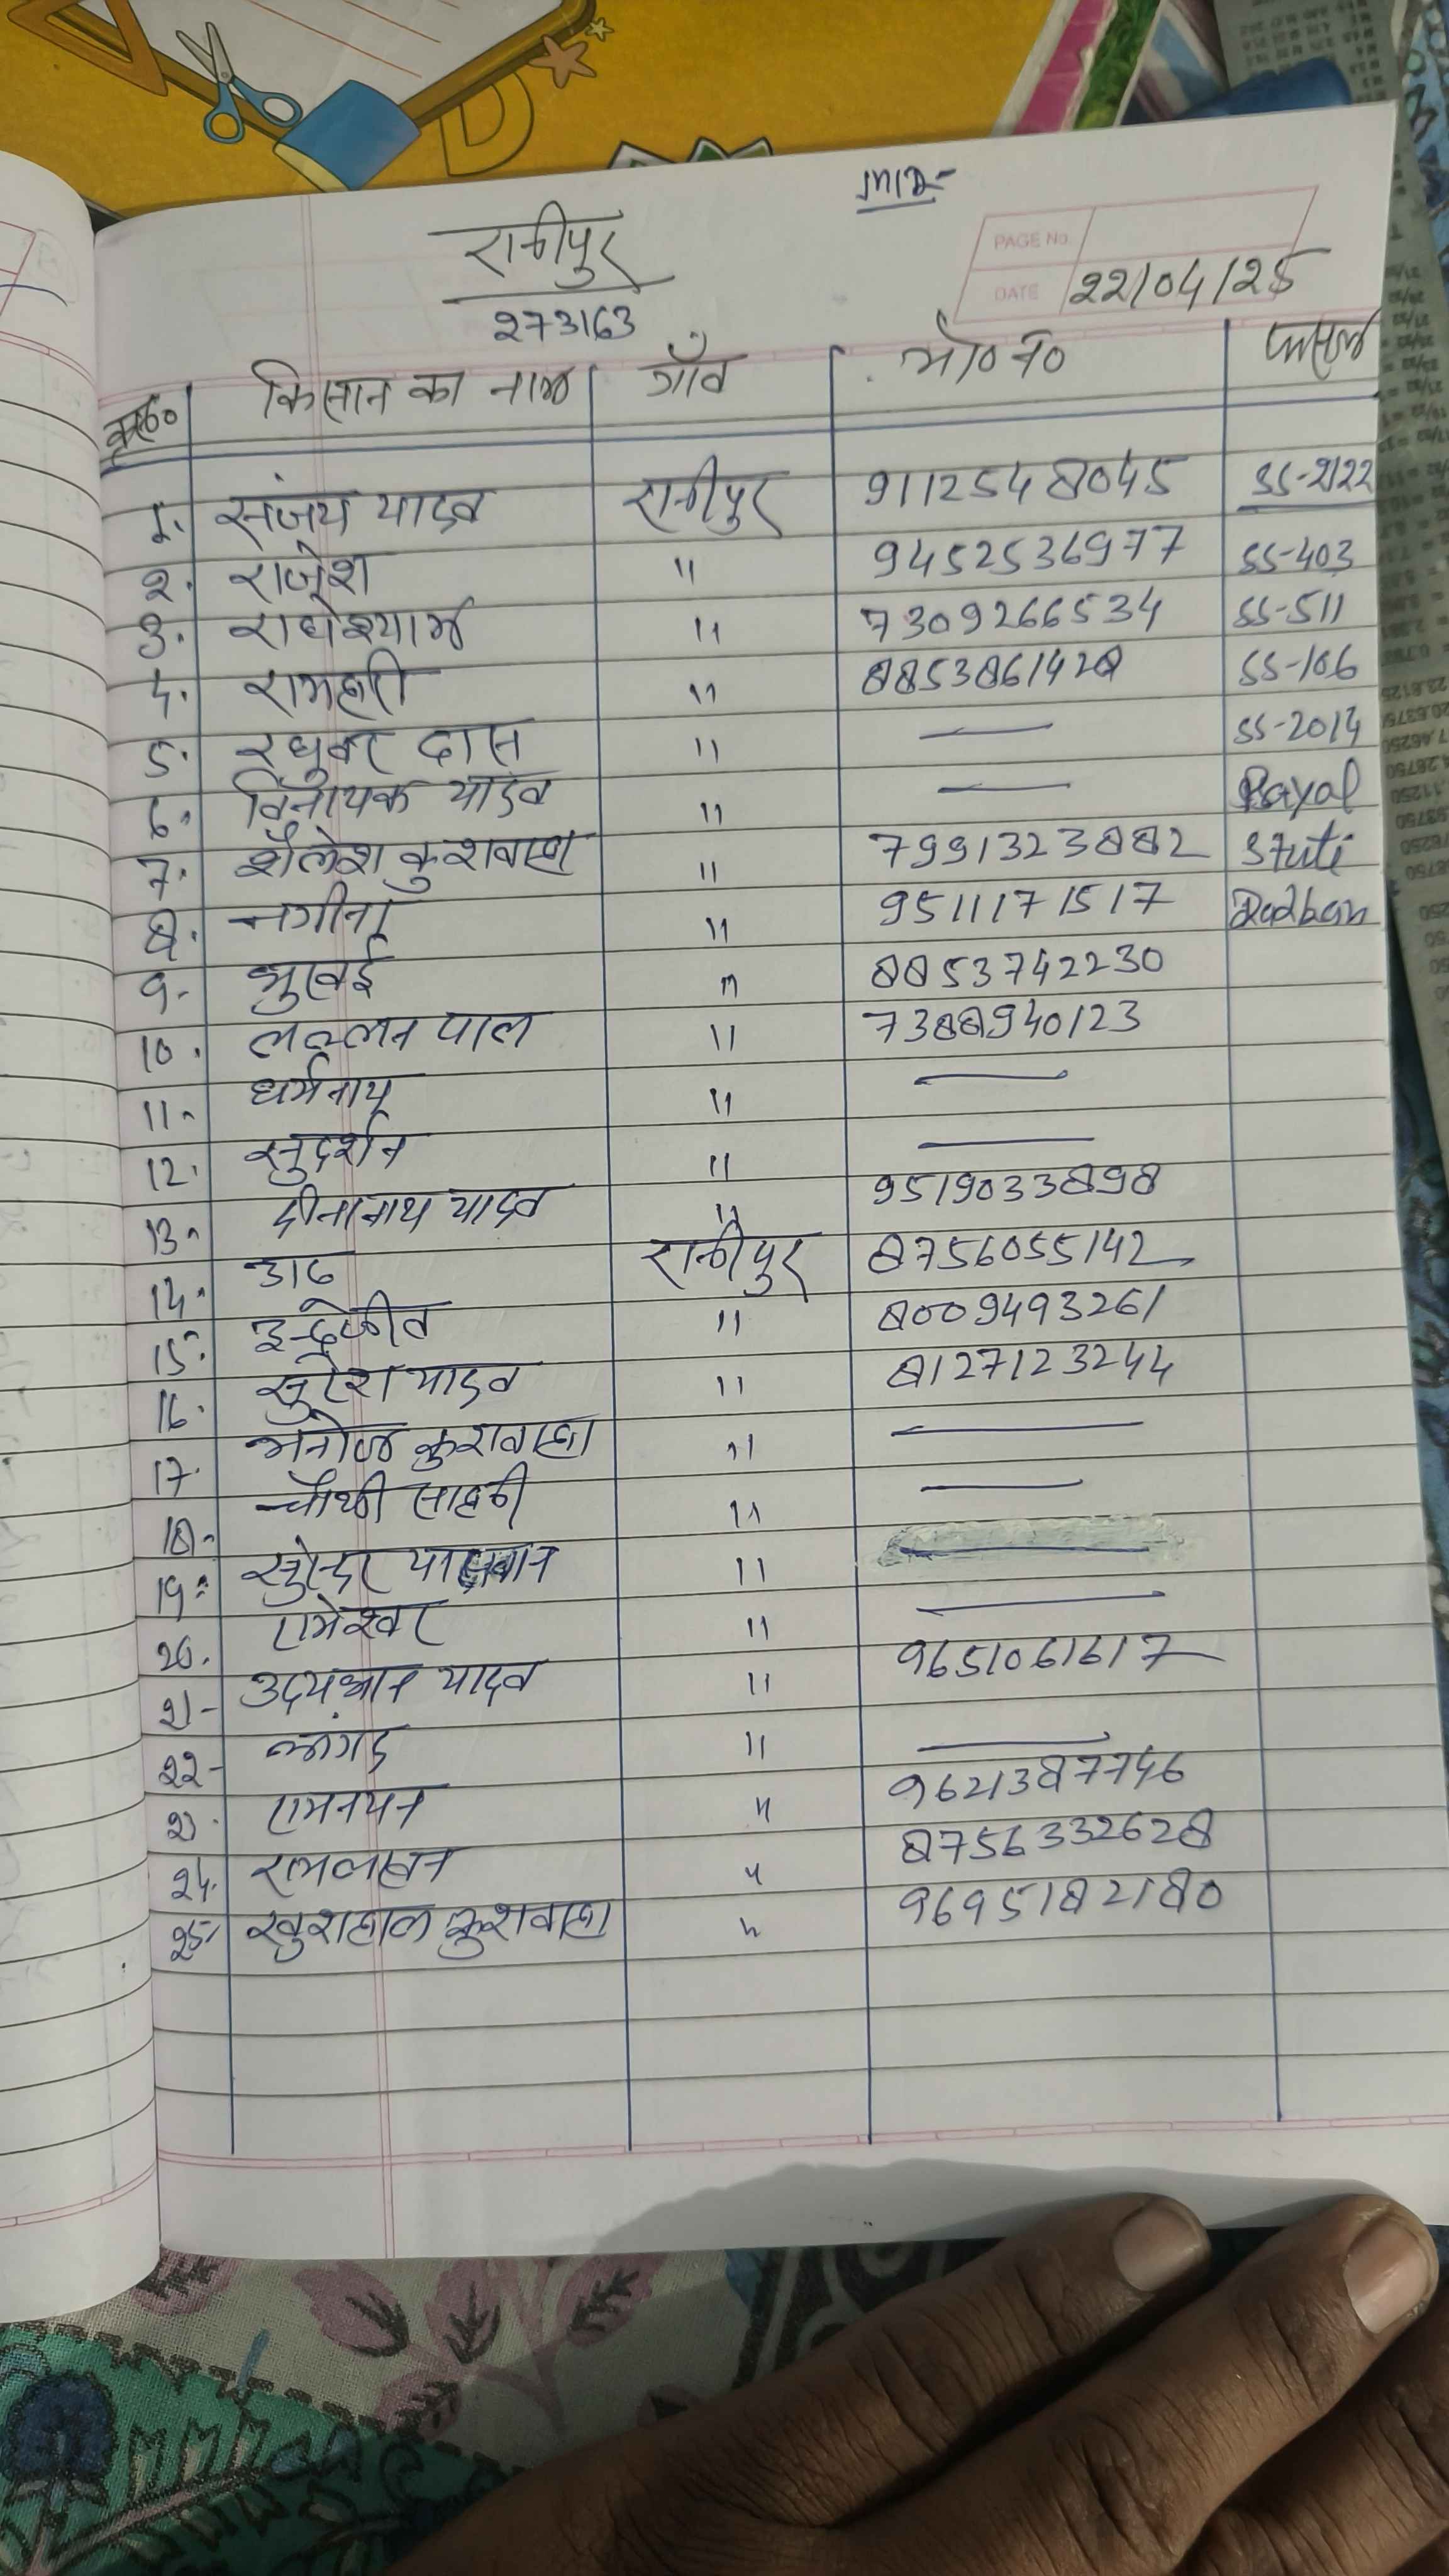 रानीपुर
273163
PAGE No.
DATE 22/04/25
क्र०सं० किसान का नाम गाँव मो० न०
1. संजय यादव रानीपुर 9112548045 SS-2122
2. राजेश " 9452536977 SS-403
3. राधेश्याम " 7309266534 SS-511
4. रामहरी " 8853861428 SS-106
5. रघुबर दास " — SS-2014
6. विनायक यादव " — Payal
7. शैलेश कुशवाहा " 7991323882 Stuti
8. नगीना " 9511171517
9. भुखई " 8853742230
10. लल्लन पाल " 7388940123
11. धर्मनाथ " —
12. सुदर्शन " —
13. दीनानाथ यादव " 9519033898
14. रानीपुर 8756055142
15. इन्द्रजीत " 8009493261
16. सुरेश यादव " 8127123244
17. मनोज कुशवाहा " —
18. चौथी साहनी " —
19. सुरेन्द्र पासवान " —
20. रामेश्वर " —
21- उदयभान यादव " 9651061617
22- " —
23. रामनयन " 9621387746
24. रामलखन " 8756332628
25- खुशहाल कुशवाहा " 9695182180